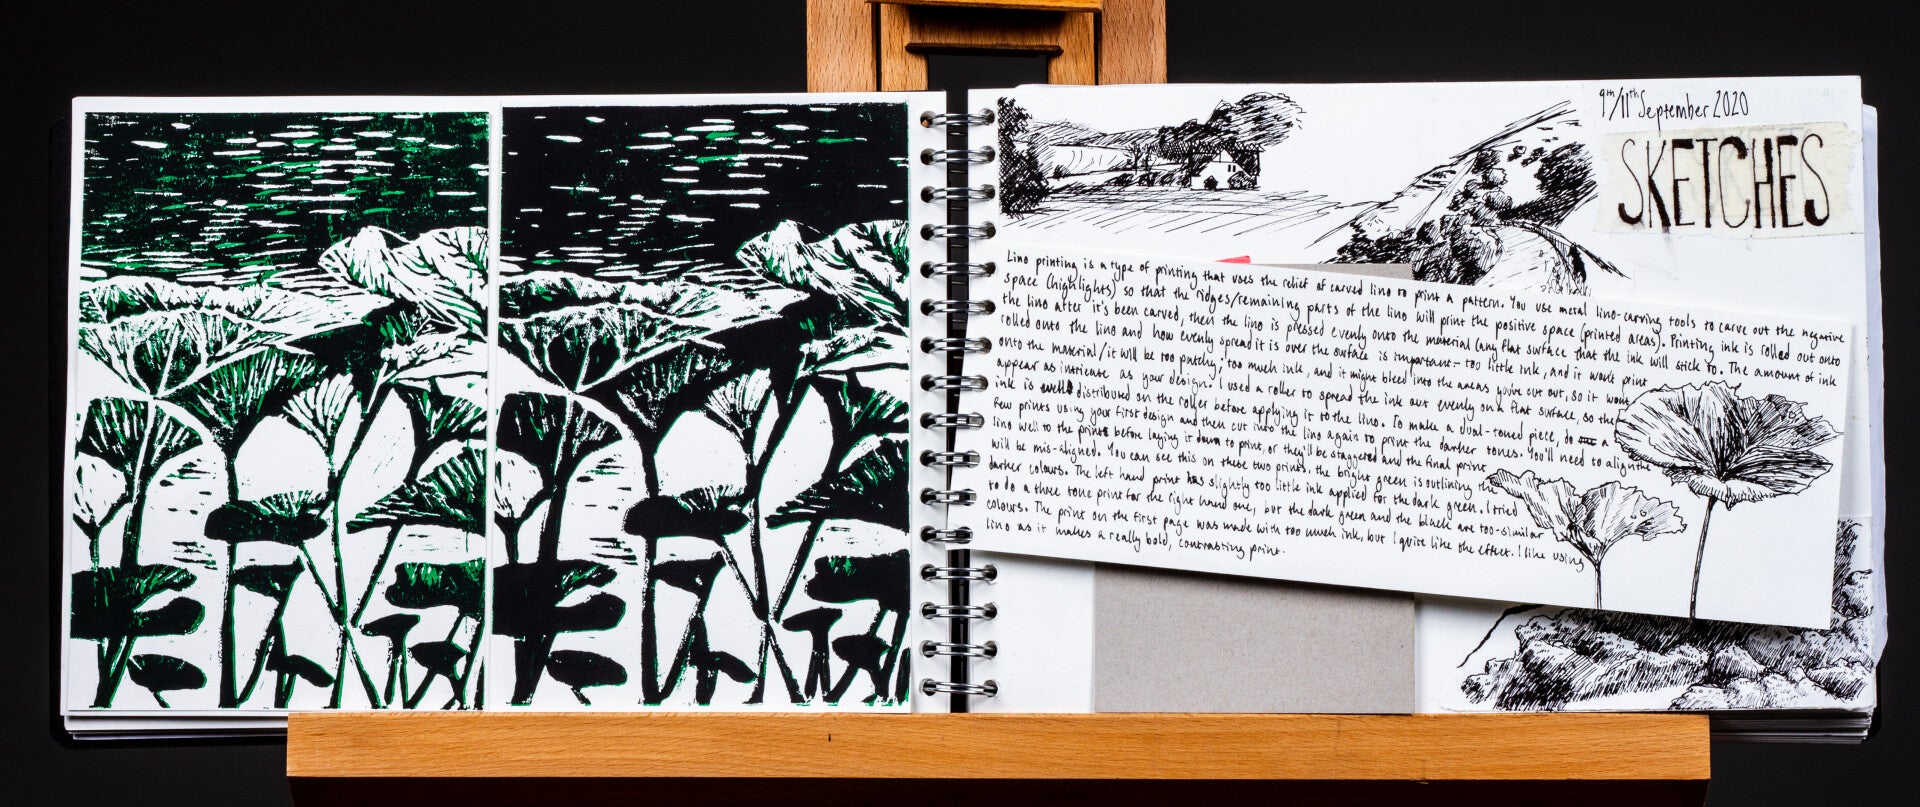 9th/11th September 2020
SKETCHES
Lino printing is a type of printing that uses the relief of carved lino to print a pattern. You use metal lino-carving tools to carve out the negative
space (highlights) so that the ridges/remaining parts of the lino will print the positive space (printed areas). Printing ink is rolled out onto
the lino after it's been carved, then the lino is pressed evenly onto the material (any flat surface that the ink will stick to. The amount of ink
rolled onto the lino and how evenly spread it is over the surface is important - too little ink, and it won't print
onto the material/it will be too patchy, too much ink, and it might bleed into the areas you've cut out, so it wont
appear as intricate as your design. I used a roller to spread the ink out evenly on a flat surface, so the
ink is distributed on the roller before applying it to the lino. To make a dual-toned piece, do a
few prints using your first design and then cut into the lino again to print the darker tones. You'll need to align the
lino well to the prints before laying it down to print, or they'll be staggered and the final print
will be mis-aligned. You can see this on these two prints, the bright green is outlining the
darker colours. The left hand print has slightly too little ink applied for the dark green. I tried
to do a three tone print for the right hand one, but the dark green and the black are too-similar
colours. The print on the first page was made with too much ink, but I quite like the effect. I like using
lino as it makes a really bold, contrasting print.